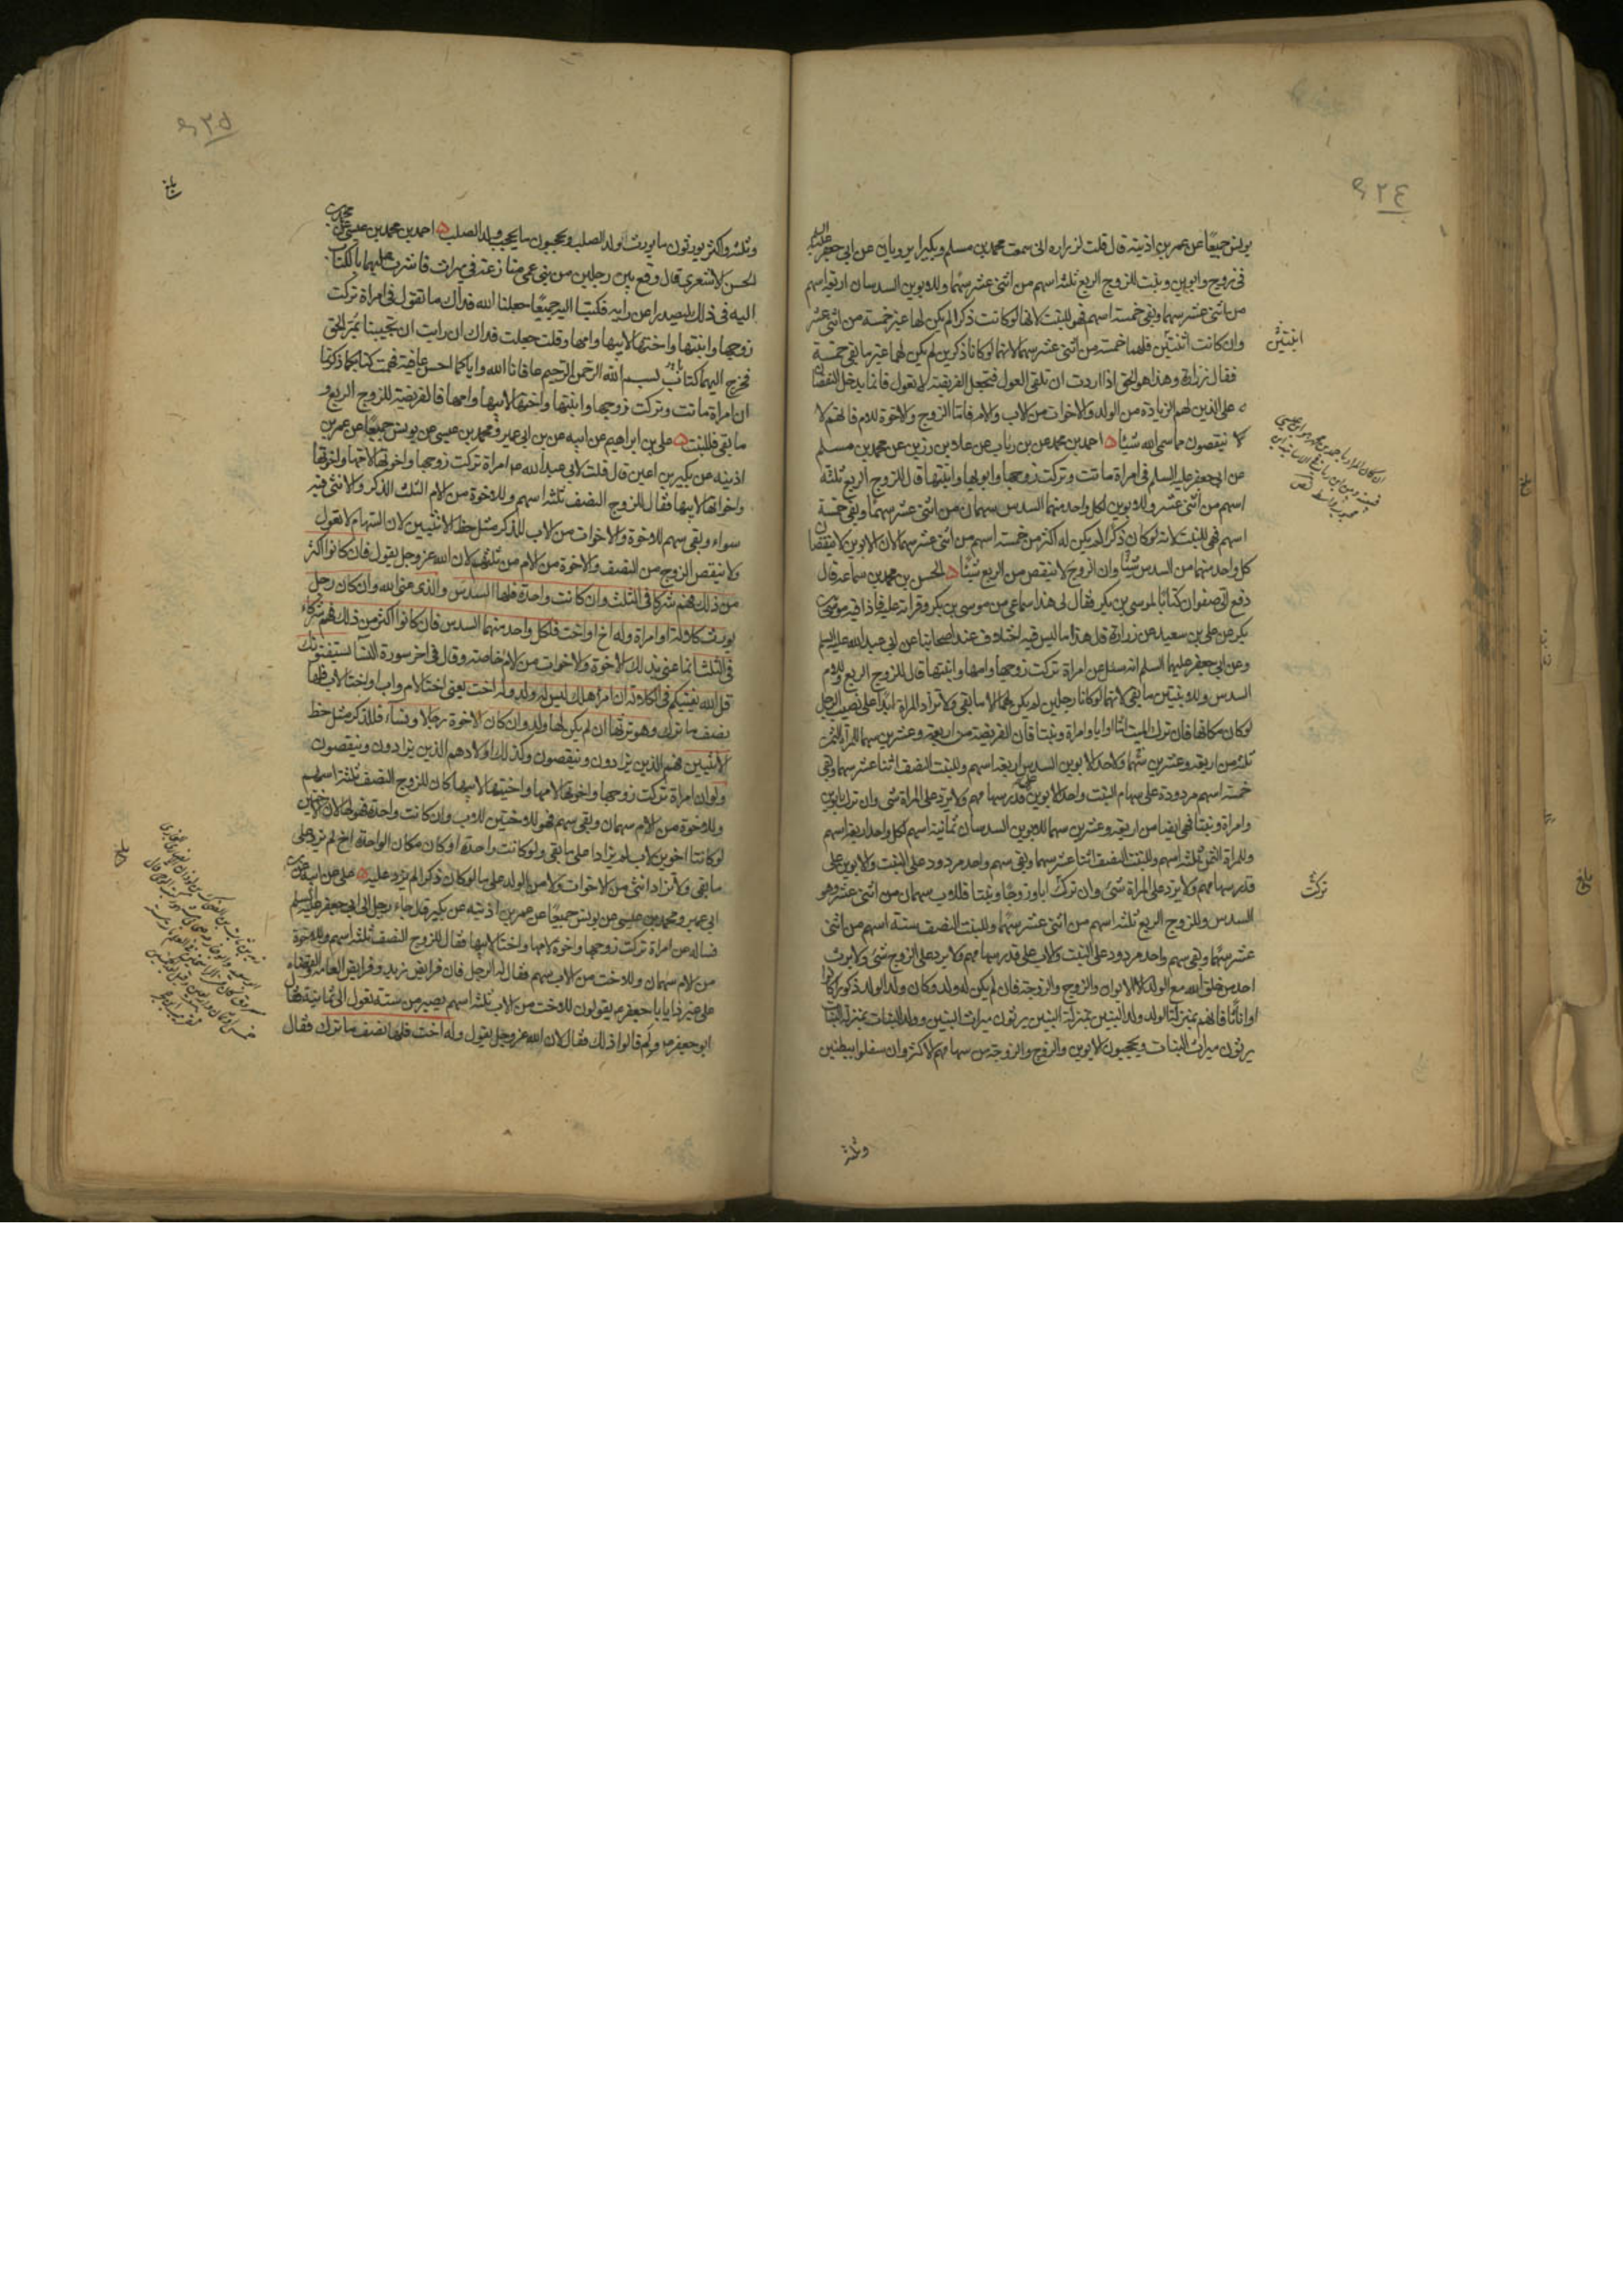 يونس جميعًا عن عمر بن اذينه قال قلت لزراره انى سمعت محمد بن مسلم وبكيرا يرويان عن ابى جعفر عليه السلم
فى زوج وابوين وبنت للزوج الربع ثلثه اسهم من اثنى عشر سهمًا وللابوين السدسان اربعة اسهم
من اثنى عشر سهما وبقى خمسة اسهم فهو للبنت لانها لو كانت ذكرا لم يكن لها غير خمسة من اثنى عشر
وان كانت اثنتين فلهما خمسه من اثنى عشر سهما لانهما لو كانا ذكرين لم يكن لهما غير ما بقى خمسة
فقال زرارة وهذا هو الحق اذا اردت ان تلقى العول فتجعل الفريضة لا تعول فانما يدخل النقصان
على الذين لهم الزيادة من الولد والاخوات من الاب والام فاما الزوج والاخوة للام فانهم لا
لا ينقصون مما سمى الله شيئا احمد بن محمد عن بن رياب عن علا بن رزين عن محمد بن مسلم
عن ابى جعفر عليه السلم فى امراة ماتت وتركت زوجها وابويها وابنتها قال للزوج الربع ثلثة
اسهم من اثنى عشر وللابوين لكل واحد منهما السدس سهمان من اثنى عشر سهمًا وبقى خمسة
اسهم فهى للبنت لانه لو كان ذكرا لم يكن له اكثر من خمسة اسهم من اثنى عشر سهما لان الابوين لا ينقصان
كل واحد منهما من السدس شيئًا وان الزوج لا ينقص من الربع شيئًا الحسن بن محمد بن سماعه قال
دفع الى صفوان كتابًا لموسى بن بكر فقال لى هذا سماعى من موسى بن بكر وقراته عليه فاذا فيه موسى بن
بكر عن على بن سعيد عن زرارة قال هذا ما ليس فيه اختلاف عند اصحابنا عن ابى عبد الله عليه السلم
وعن ابى جعفر عليهما السلم انه سئل عن امراة تركت زوجها وامها وابنتيها قال للزوج الربع وللام
السدس وللابنتين ما بقى لانهما لو كانا رجلين لم يكن لهما الا ما بقى ولا تزاد المراة ابدًا على نصيب الرجل
لو كان مكانها فان ترك الميت امًا او ابا وامراة وبنتا فان الفريضة من اربعة وعشرين سهما للمراة الثمن
ثلثه من اربعه وعشرين سهما ولاحد الابوين السدس اربعه اسهم وللبنت النصف اثنا عشر سهما وبقى
خمسة اسهم مردودة على سهام البنت واحد الابوين على قدر سهامهم ولا يرد على المراة شى وان ترك ابوين
وامراة وبنتا فهى ايضا من اربعه وعشرين سهما للابوين السدسان ثمانية اسهم لكل واحد اربعة اسهم
وللمراة الثمن ثلثه اسهم وللبنت النصف اثنا عشر سهما وبقى سهم واحد مردود على البنت والابوين على
قدر سهامهم ولا يرد على المراة شئ وان ترك ابا وزوجًا وبنتا فللاب سهمان من اثنى عشر وهو
السدس وللزوج الربع ثلثه اسهم من اثنى عشر سهمًا وللبنت النصف ستة اسهم من اثنى
عشر سهمًا وبقى سهم واحد مردود على البنت والاب على قدر سهامهم ولا يرد على الزوج شئ ولا يرث
احد من خلق الله مع الولد الا الابوان والزوج والزوجة فان لم يكن له ولد وكان ولد الولد ذكورا كانوا
او اناثًا فانهم بمنزلة الولد ولد البنين بمنزلة البنين يرثون ميراث البنين وولد البنات بمنزلة البنات
يرثون ميراث البنات ويحجبون الابوين والزوج والزوجة من سهامهم الاكثر وان سفلوا ببطنين
وثلثه
ابنتين
تركت
٤٢٥
وثلثه واكثر يورثون ما يورث الولد الصلب ويحجبون ما يحجب ولد الصلب احمد بن محمد بن عيسى عن محمد بن
الحسن الاشعرى قال وقع بين رجلين من بنى عمى منازعة فى ميراث فاشرت عليهما بالكتاب
اليه فى ذلك ليصدرا عن رايه فكتبا اليه جميعًا جعلنا الله فداك ما تقول فى امراة تركت
زوجها وابنتها واختها لابيها وامها وقلت جعلت فداك ان رايت ان تجيبنا بمر الحق
فخرج اليهما كتاب بسم الله الرحمن الرحيم عافانا الله واياكما احسن عافية فهمت كتابكما ذكرتما
ان امراة ماتت وتركت زوجها وابنتها واختها لابيها وامها فالفريضة للزوج الربع و
ما بقى فللبنت على بن ابراهيم عن ابيه عن بن ابى عمير ومحمد بن عيسى عن يونس جميعًا عن عمر بن
اذينه عن بكير بن اعين قال قلت لابى عبد الله ع امراة تركت زوجها واخوتها لامها واخوتها
واخواتها لابيها فقال للزوج النصف ثلثه اسهم وللاخوة من الام الثلث الذكر والانثى فيه
سواء وبقى سهم للاخوة والاخوات من الاب للذكر مثل حظ الانثيين لان السهام لا تعول
ولا ينقص الزوج من النصف والاخوة من الام من ثلثهم لان الله عز وجل يقول فان كانوا اكثر
من ذلك فهم شركا فى الثلث وان كانت واحدة فلها السدس والذى عنى الله وان كان رجل
يورث كلالة او امراة وله اخ او اخت فلكل واحد منهما السدس فان كانوا اكثر من ذلك فهم شركاء
فى الثلث انما عنى بذلك الاخوة والاخوات من الام خاصة وقال فى اخر سورة النسآ يستفتونك
قل الله يفتيكم فى الكلالة ان امرؤ هلك ليس له ولد وله اخت يعنى اختا لام واب او اختا لاب فلها
نصف ما ترك وهو يرثها ان لم يكن لها ولد وان كان الاخوة رجالا ونساء فللذكر مثل حظ
الانثيين فهم الذين يزادون وينقصون وكذلك اولادهم الذين يزادون وينقصون
ولو ان امراة تركت زوجها واخوتها لامها واختيها لابيها كان للزوج النصف ثلثة اسهم
وللاخوة من الام سهمان وبقى سهم فهو للاختين للاب وان كانت واحدة فهو لها لان الاختين
لو كانتا اخوين لاب لم يزادا على ما بقى ولو كانت واحدة او كان مكان الواحدة اخ لم يزد على
ما بقى ولا تزاد انثى من الاخوات ولا من الولد على ما لو كان ذكرا لم يزد عليه على عن ابيه عن بن
ابى عمير ومحمد بن عيسى عن يونس جميعًا عن عمر بن اذينه عن بكير قال جاء رجل الى ابى جعفر عليه السلم
فساله عن امراة تركت زوجها واخوة لامها واختا لابيها فقال للزوج النصف ثلثه اسهم وللاخوة
من الام سهمان وللاخت من الاب سهم فقال له الرجل فان فرايض زيد وفرايض العامة والقضاة
على غير ذا يا با جعفر يقولون للاخت من الاب ثلثه اسهم يصير من ستة تعول الى ثمانية فقال
ابو جعفر ع ولم قالوا ذلك فقال لان الله عز وجل يقول وله اخت فلها نصف ما ترك فقال